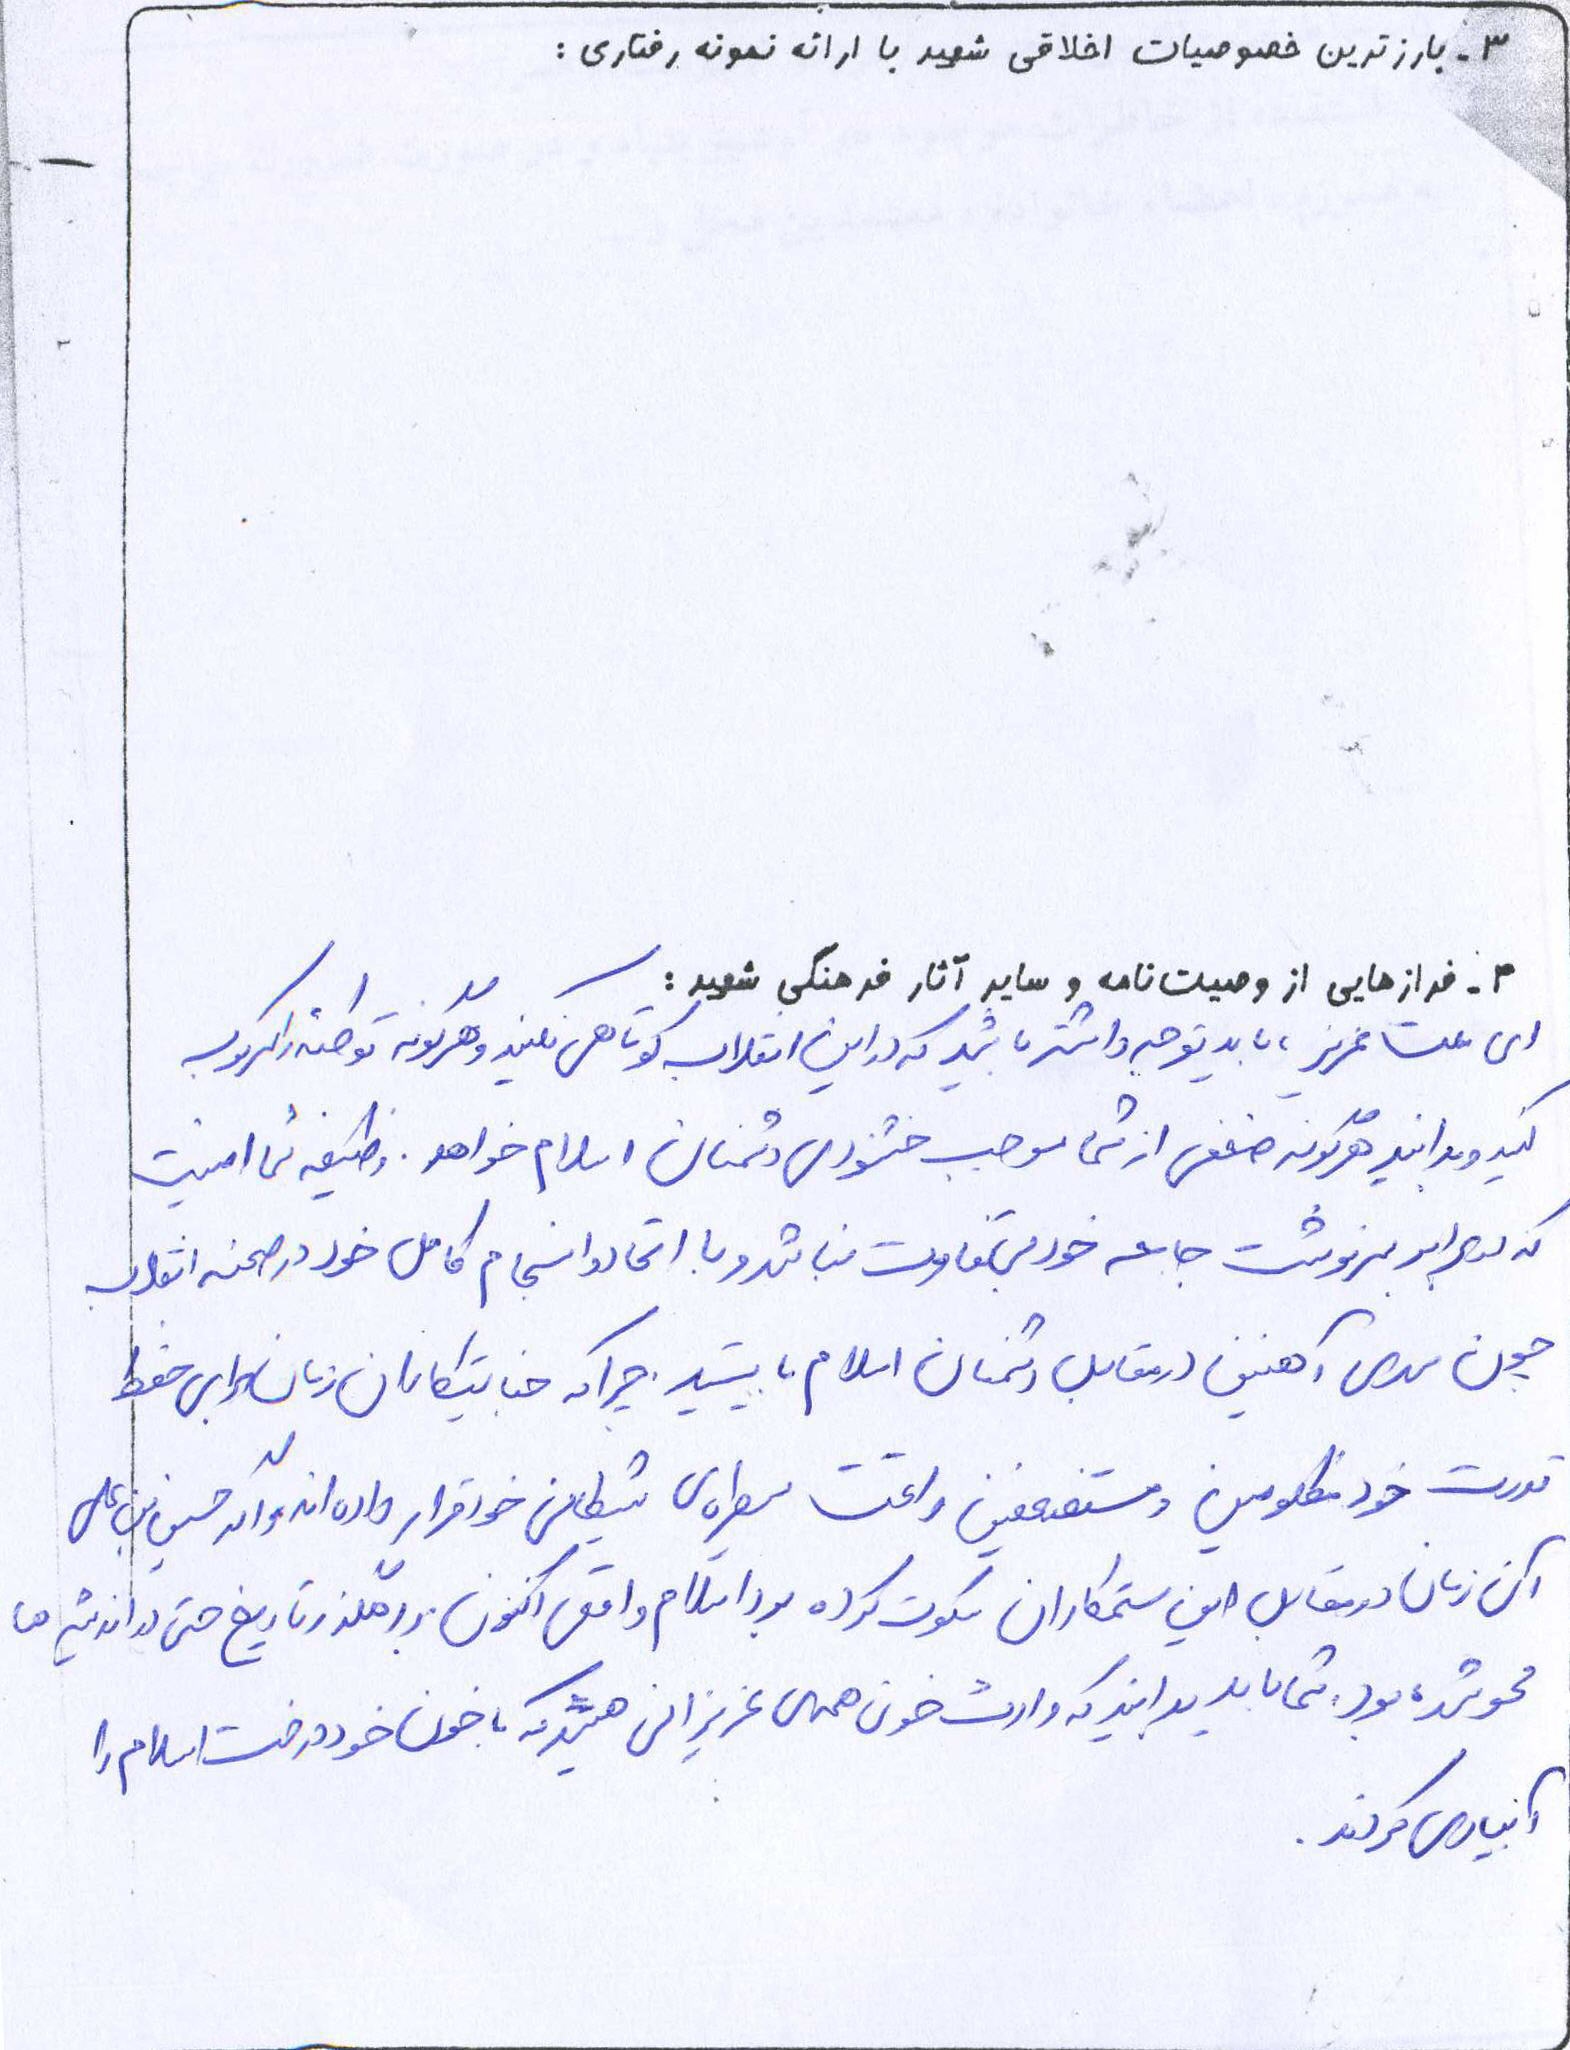 ۳ـ بارزترین خصوصیات اخلاقی شهید با ارائه نمونه رفتاری :
۴ـ فرازهایی از وصیت‌نامه و سایر آثار فرهنگی شهید :
ای ملت عزیز، باید توجه داشته باشید که در این انقلاب کوتاهی نکنید و هرگونه توطئه را سرکوب
کنید و بدانید هرگونه ضعفی از شما موجب خشنودی دشمنان اسلام خواهد. وظیفه شما اینست
که در برابر سرنوشت جامعه خود بی‌تفاوت نباشید و با اتحاد و انسجام کامل خود در صحنه انقلاب
چون سدی آهنین در مقابل دشمنان اسلام بایستید. چرا که جنایتکاران زمان برای حفظ
قدرت خود مظلومین و مستضعفین را تحت سیطره‌ی شیطانی خود قرار داده‌اند و اگر حسین بن علی
آن زمان در مقابل این ستمکاران سکوت کرده بود اسلام واقعی اکنون در گذر تاریخ حتی در اندیشه ها
محو شده بود. شما باید بدانید که وارث خون همه‌ی عزیزانی هستید که با خون خود درخت اسلام را
آبیاری کردند.